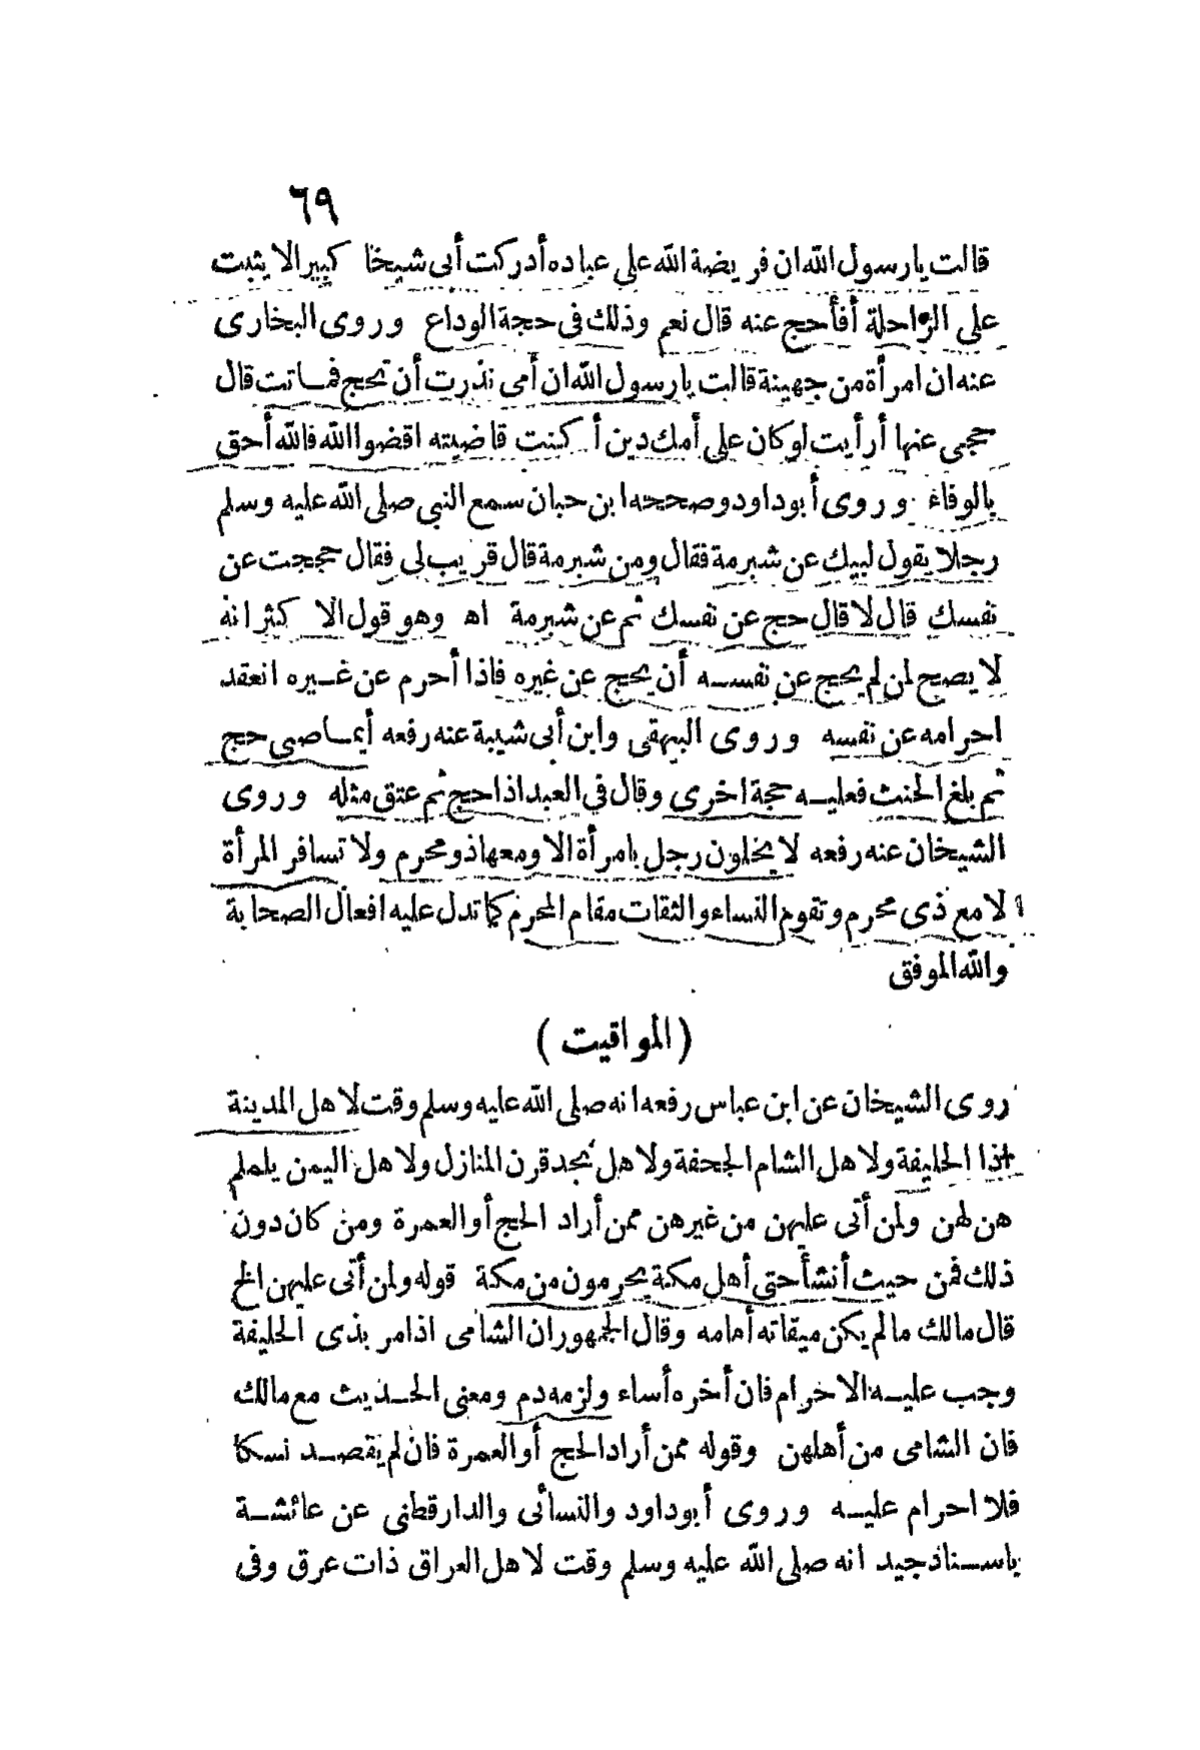 ٦٩
قالت يا رسول الله ان فريضة الله على عباده أدركت أبى شيخا كبيرا لا يثبت
على الراحلة أفأحج عنه قال نعم وذلك فى حجة الوداع وروى البخارى
عنه ان امرأة من جهينة قالت يا رسول الله ان أمى نذرت أن تحج فماتت قال
حجى عنها أرأيت لو كان على أمك دين أكنت قاضيته اقضوا الله فالله أحق
بالوفاء وروى أبو داود وصححه ابن حبان سمع النبي صلى الله عليه وسلم
رجلا يقول لبيك عن شبرمة فقال ومن شبرمة قال قريب لى فقال حججت عن
نفسك قال لا قال حج عن نفسك ثم عن شبرمة اه وهو قول الاكثر انه
لا يصح لمن لم يحج عن نفسه أن يحج عن غيره فاذا أحرم عن غيره انعقد
احرامه عن نفسه وروى البيهقى وابن أبى شيبة عنه رفعه أيما صبى حج
ثم بلغ الحنث فعليه حجة اخرى وقال فى العبد اذا حج ثم عتق مثله وروى
الشيخان عنه رفعه لا يخلون رجل بامرأة الا ومعها ذو محرم ولا تسافر المرأة
الا مع ذى محرم وتقوم النساء والثقات مقام المحرم كما تدل عليه افعال الصحابة
والله الموفق
(المواقيت)
روى الشيخان عن ابن عباس رفعه انه صلى الله عليه وسلم وقت لاهل المدينة
ذا الحليفة ولاهل الشام الجحفة ولاهل نجد قرن المنازل ولاهل اليمن يلملم
هن لهن ولمن أتى عليهن من غيرهن ممن أراد الحج أو العمرة ومن كان دون
ذلك فمن حيث أنشأ حتى أهل مكة يحرمون من مكة قوله ولمن أتى عليهن الخ
قال مالك ما لم يكن ميقاته أمامه وقال الجمهور ان الشامى اذا مر بذى الحليفة
وجب عليه الاحرام فان أخره أساء ولزمه دم ومعنى الحديث مع مالك
فان الشامى من أهلهن وقوله ممن أراد الحج أو العمرة فان لم يقصد نسكا
فلا احرام عليه وروى أبو داود والنسائى والدارقطنى عن عائشة
باسناد جيد انه صلى الله عليه وسلم وقت لاهل العراق ذات عرق وفى